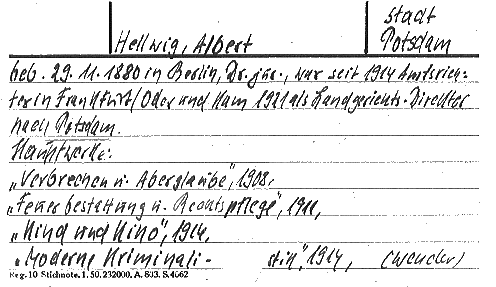 Hellwig, Albert
Stadt
Potsdam
geb. 29.11.1880 in Berlin, Dr. jur., war seit 1914 Amtsrich-
ter in Frankfurt/Oder und kam 1921 als Landgerichts-Direktor
nach Potsdam.
Hauptwerke:
„Verbrechen u. Aberglaube", 1908,
„Feuerbestattung u. Rechtspflege", 1911,
„Kind und Kino", 1914,
„Moderne Kriminali- stik", 1914, (wenden)
Reg. 10 Stichnote. 1. 50. 232000. A. 803. S. 4662